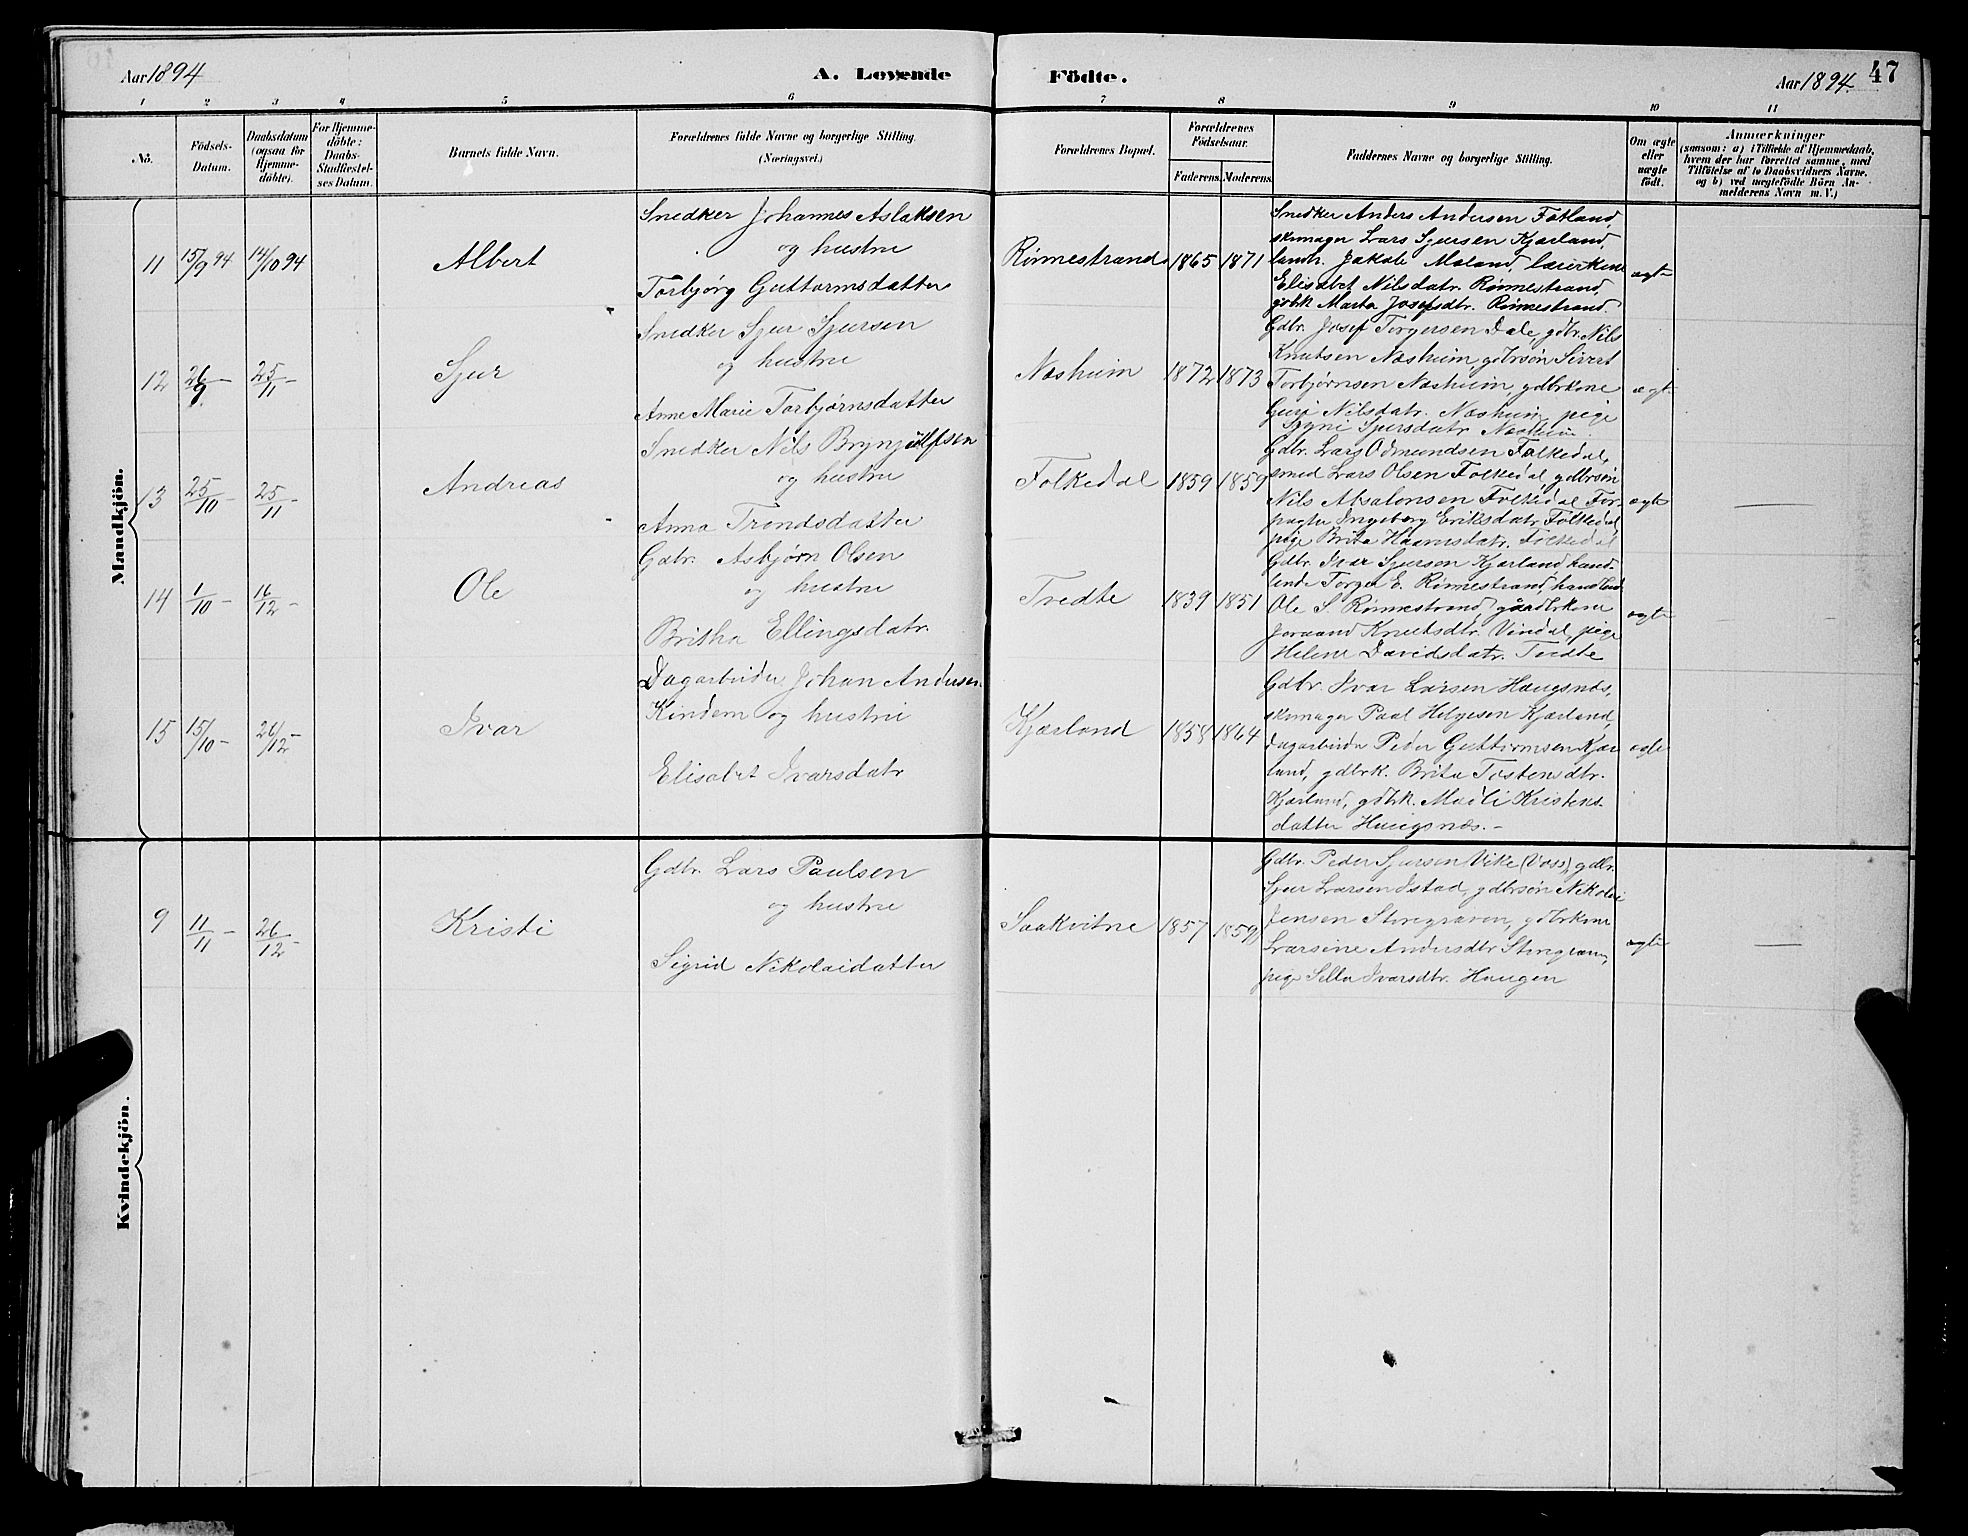 Aar 1894
A. Levende
Födte.
Aar 1894.
47
1 2 3 4 5 6 7 8 9 10 11
No.
Födsels-
Datum.
Daabsdatum
(ogsaa for
Hjemme-
döbte).
For Hjemme-
döbte:
Daabs-
Stadfæstel-
ses Datum.
Barnets fulde Navn.
Forældrenes fulde Navne og borgerlige Stilling.
(Næringsvei.)
Forældrenes Bopæl.
Forældrenes
Födselsaar.
Faderens. Moderens.
Faddernes Navne og borgerlige Stilling.
Om ægte
eller
uægte
födt.
Anmærkninger
(saasom: a) i Tilfælde af Hjemmedaab,
hvem der har forrettet samme, med
Tilföielse af to Daabsvidners Navne,
og b) ved uægtefödte Börn An-
melderens Navn m. V.)
Mandkjön.
11 15/9 94 14/10 94 Albert
Snedker Johannes Aslaksen
og hustru
Torbjørg Guttormsdatter
Rönnestrand 1865 1871
Snedker Anders Andersen Fotland,
skomager Lars Sjursen Kjærland,
landh. Jakob Moland,
Elisabet Nilsdatr. Rönnestrand,
gbrk Marta Josefsdtr. Rönnestrand.
ægte
12 26/9 - 25/11 - Sjur
Snedker Sjur Sjursen
og hustru
Anne Marie Torbjørnsdatter
Næsheim 1872 1873
Gdbr. Josef Torgersen Dale, gdbr. Nils
Knutsen Næsheim, gdbrsön Sivert
Torbjørnsen Næsheim, gdbrkone
Guri Nilsdatr. Næsheim, pige
Sygni Sjursdatr Næsheim.
ægte
13 25/10 - 25/11 - Andreas
Snedker Nils Brynjulfsen
og hustru
Anna Trondsdatter
Folkedal 1859 1859
Gdbr. Lars Odmundsen Folkedal,
smed Lars Olsen Folkedal, gdbrsön
Nils Absalonsen Folkedal For-
pagter Ingeborg Eriksdatr. Folkedal
pige Brita Haavarsdatr. Folkedal
ægte
14 1/10 - 16/12 - Ole
Gdbr. Asbjørn Olsen
og hustru
Britha Ellingsdatr.
Tvedte 1839 1851
Gdbr. Ivar Sjursen Kjærland, hand-
lende Torger E. Rönnestrand, handlend
Ole S. Rönnestrand, gaardbrkone
Joraand Knutsdtr. Vindal, pige
Helene Davidsdatr. Tvedte
ægte
15 15/10 - 26/12 - Ivar
Dagarbeider Johan Andersen
Kindem og hustru
Elisabet Ivarsdatr
Kjærland 1858 1864
Gdbr. Ivar Larsen Haugsnæs,
skomager Paal Helgesen Kjærland,
Dagarbeider Peder Guttormsen Kjær
land, gdbrk. Brita Tostensdtr.
Kjærland, gdbrk. Madli Kristens-
datter Haugsnæs. -
ægte
Kvindekjön.
9 11/11 - 26/12 - Kristi
Gdbr. Lars Paulsen
og hustru
Sigrid Nikolaidatter
Saakvitne 1857 1859
Gdbr. Peder Sjursen Vike (Voss), gdbr.
Sjur Larsen Istad, gdbrsön Nikolai
Jensen Storegraven, gdbrkone
Larsine Andersdtr Storegraven,
pige Sella Ivarsdtr. Haugen
ægte